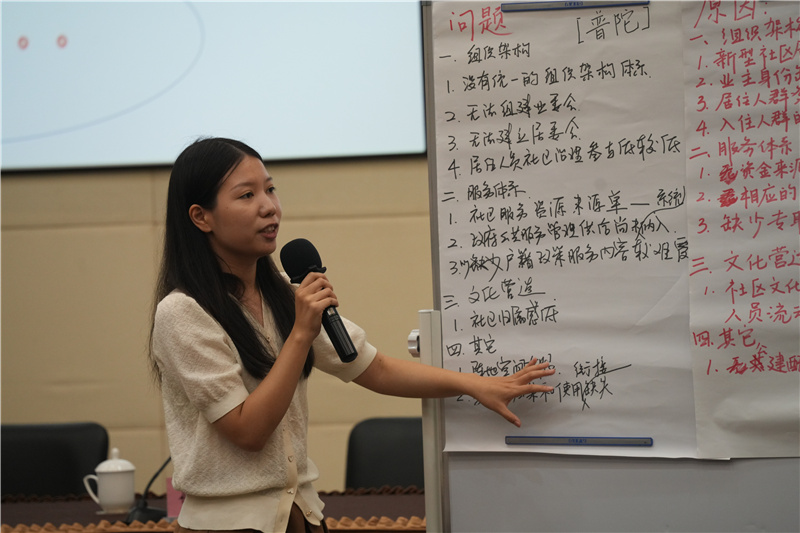 问题 [普陀]
一. 组织架构
1. 没有统一的组织架构体系.
2. 无法组建业委会
3. 无法建立居委会.
4. 居住人员社区治理参与度较低
二. 服务体系
1. 社区服务资源来源单一 系统
2. 政府公共服务管理供给尚未纳入.
3. 缺少户籍政策服务内容较难覆
三. 文化营造
1. 社区归属感低
四. 其它
1. 衔接
2. 和使用缺失
原因
一、组织架构
1. 新型社区
2. 业主身份
3. 居住人群
4. 入住人群的
二. 服务体系
1. 资金来源
2. 相应的
3. 缺少专
三. 文化营造
1. 社区文化
人员流
四. 其它
1. 建